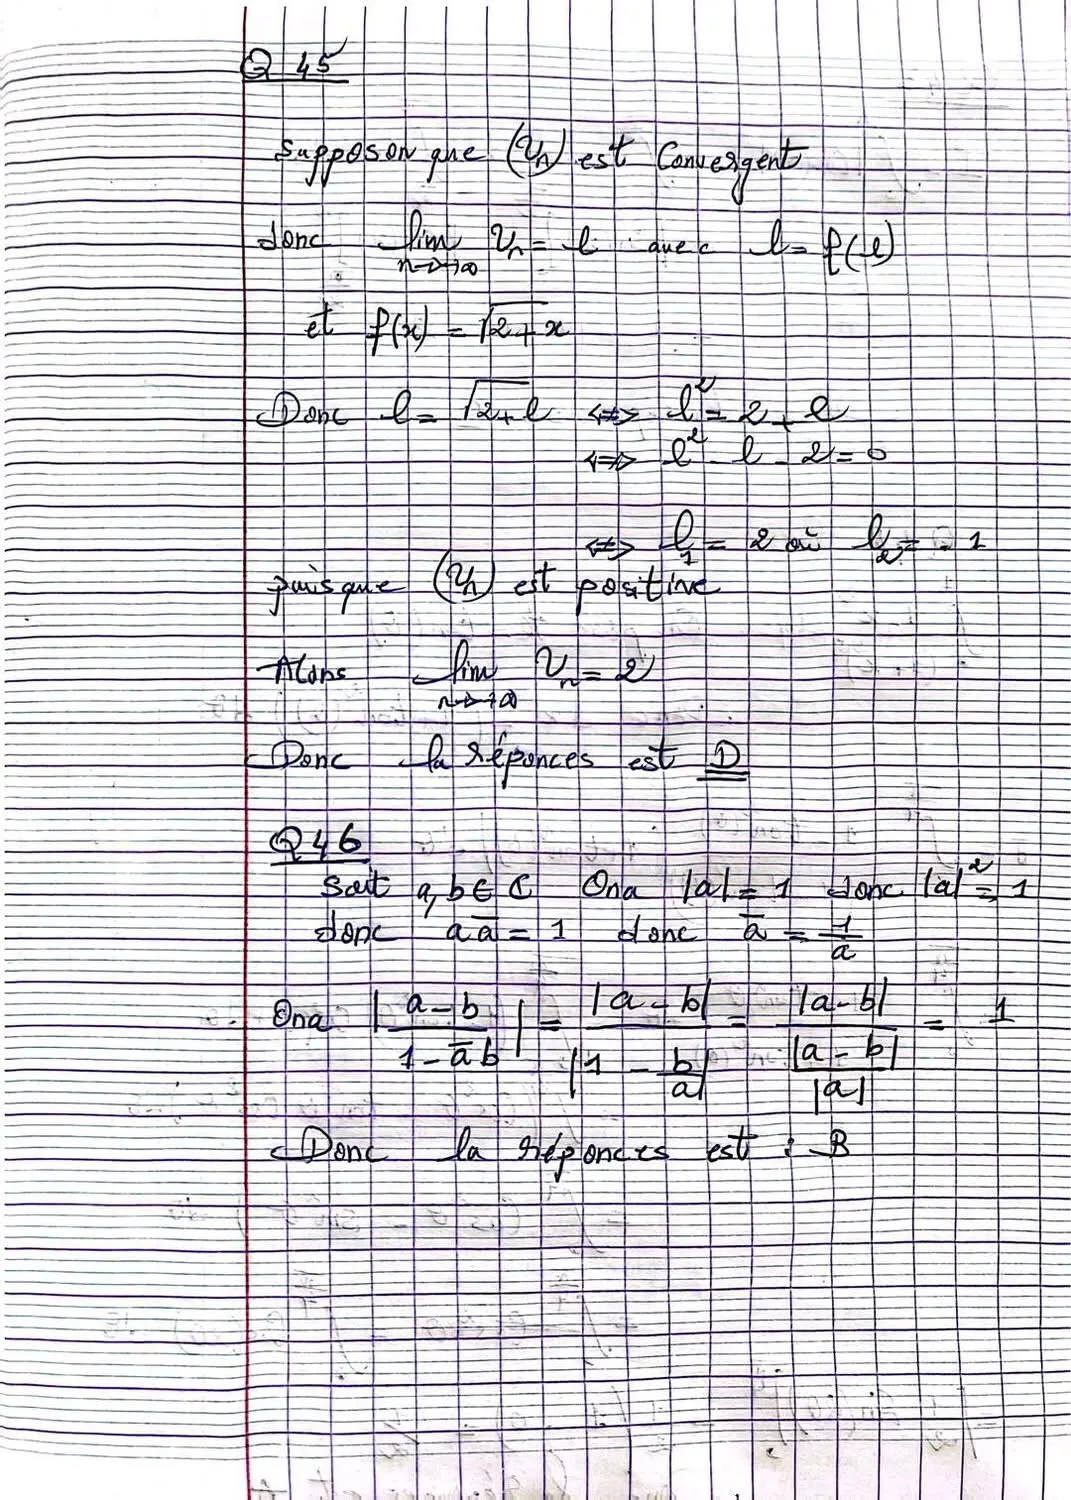 Q 45
supposon que (Un) est Convergent
donc lim Un = l avec l = f(l)
n→+∞
et f(x) = √2+x
Donc l = √2+l <=> l² = 2 + l
<=> l² - l - 2 = 0
<=> l₁ = 2 où l₂ = -1
puisque (Un) est positive
Alors lim Un = 2
n→+∞
Donc la réponces est D
Q 46
Soit a, b ∈ C Ona |a| = 1 donc |a|² = 1
donc a a̅ = 1 donc a̅ = 1/a
Ona |(a - b)/(1 - a̅ b)| = |a - b|/|1 - b/a| = |a - b|/(|a - b|/|a|) = 1
Donc la réponces est : B